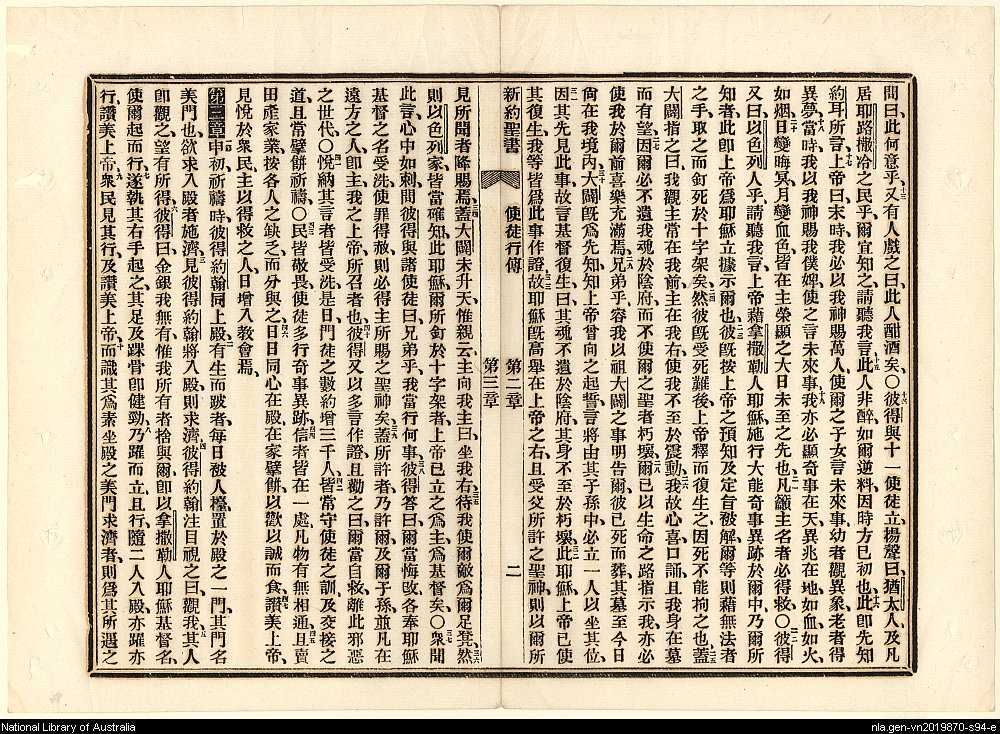 問曰、此何意乎、又有人戲之曰、此人酣酒矣、〇彼得與十一使徒立、揚聲曰、猶太人、及凡
居耶路撒冷之民乎、爾宜知之、請聽我言、此人非醉、如爾逆料、因時方已初也、此卽先知
約耳所言、上帝曰、末時我必以我神賜萬人、使爾之子女言未來事、幼者觀異象、老者得
異夢、當時我以我神賜我僕婢、使之言未來事、我亦必顯奇事在天、異兆在地、如血如火
如烟、日變晦冥、月變血色、皆在主榮顯之大日未至之先也、凡籲主名者必得救、〇彼得
又曰、以色列人乎、請聽我言、上帝藉拿撒勒人耶穌、施行大能奇事異跡於爾中、乃爾所
知者、此卽上帝爲耶穌立據示爾也、彼旣按上帝之預知及定旨被解、爾等則藉無法者
之手、取之而釘死於十字架矣、然彼旣受死難後、上帝釋而復生之、因死不能拘之也、蓋
大闢指之曰、我觀主常在我前、主在我右、使我不至於震動、我故心喜口誦、且我身在墓
而有望、因爾必不遺我魂於陰府、而不使爾之聖者朽壞、爾已以生命之路指示我、亦必
使我於爾前喜樂充滿焉、兄弟乎、容我以祖大闢之事明告爾、彼已死而葬、其墓至今日
尙在我境內、大闢旣爲先知、知上帝曾向之起誓、言將由其子孫中、必立一人以坐其位、
因其先見此事、故言基督復生曰、其魂不遺於陰府、其身不至於朽壞、此耶穌上帝已使
其復生、我等皆爲此事作證、故耶穌旣高舉在上帝之右、且受父所許之聖神、則以爾所
新約聖書 使徒行傳 第二章 第三章 二
見所聞者降賜焉、蓋大闢未升天、惟親云、主向我主曰、坐我右、待我使爾敵爲爾足凳、然
則以色列家皆當確知、此耶穌爾所釘於十字架者、上帝已立之爲主爲基督矣、〇衆聞
此言、心中如刺、問彼得與諸使徒曰、兄弟乎、我當行何事、彼得答曰、爾當悔改、各奉耶穌
基督之名受洗、使罪得赦、則必得主所賜之聖神矣、蓋所許者、乃許爾及爾子孫、並凡在
遠方之人、卽主我之上帝所召者也、彼得又以多言作證、且勸之曰、爾當自救、離此邪惡
之世代、〇悅納其言者皆受洗、是日門徒之數、約增三千人、皆常守使徒之訓、及交接之
道、且常擘餅祈禱、〇民皆敬畏、使徒多行奇事異跡、信者皆在一處、凡物有無相通、且賣
田產家業、按各人之缺乏而分與之、日日同心在殿、在家擘餅、以歡以誠而食、讚美上帝、
見悅於衆民、主以得救之人、日增入敎會焉、
第三章 申初祈禱時、彼得約翰同上殿、有生而跛者、每日被人擡置於殿之一門、其門名
美門也、欲求入殿者施濟、見彼得約翰將入殿、則求濟、彼得約翰注目視之曰、觀我、其人
卽觀之、望有所得、彼得曰、金銀我無有、惟我所有者捨與爾、卽以拿撒勒人耶穌基督名、
使爾起而行、遂執其右手起之、其足及踝骨卽健勁、乃躍而立、且行、隨二人入殿、亦躍亦
行、讚美上帝、衆民見其行、及讚美上帝、而識其爲素坐殿之美門求濟者、則爲其所遇之
National Library of Australia
nla.gen-vn2019870-s94-e